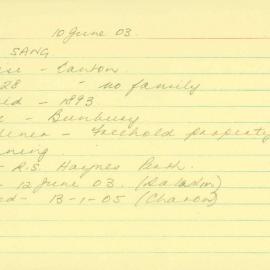 10 June 03.
SANG
ese - Canton.
28 - no family
ed - 1893.
- Bunbury
dener - freehold property
ning.
- R.S. Haynes Perth.
- 12 June 03. (Saladin)
ed - 13-1-05 (Charon)